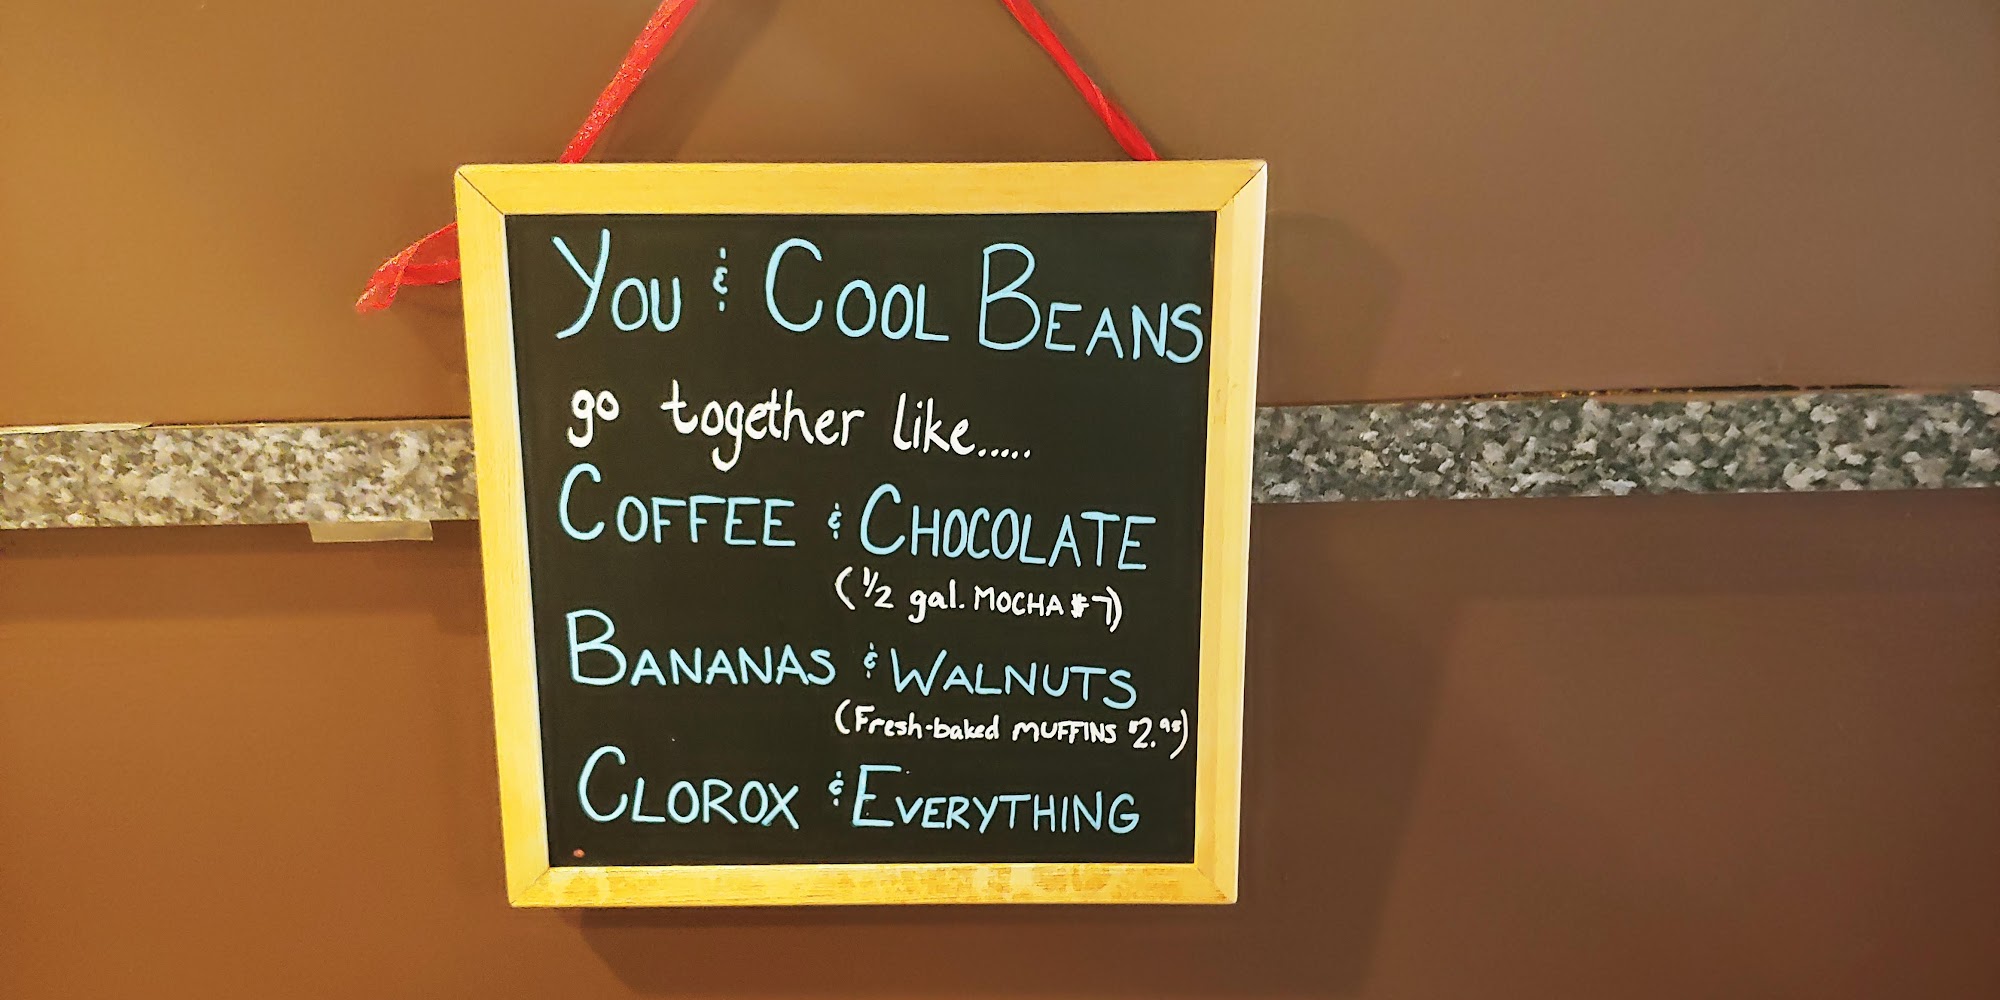 YOU & COOL BEANS
go together like.....
COFFEE & CHOCOLATE
(1/2 gal. MOCHA $7)
BANANAS & WALNUTS
(Fresh-baked MUFFINS $2.95)
CLOROX & EVERYTHING